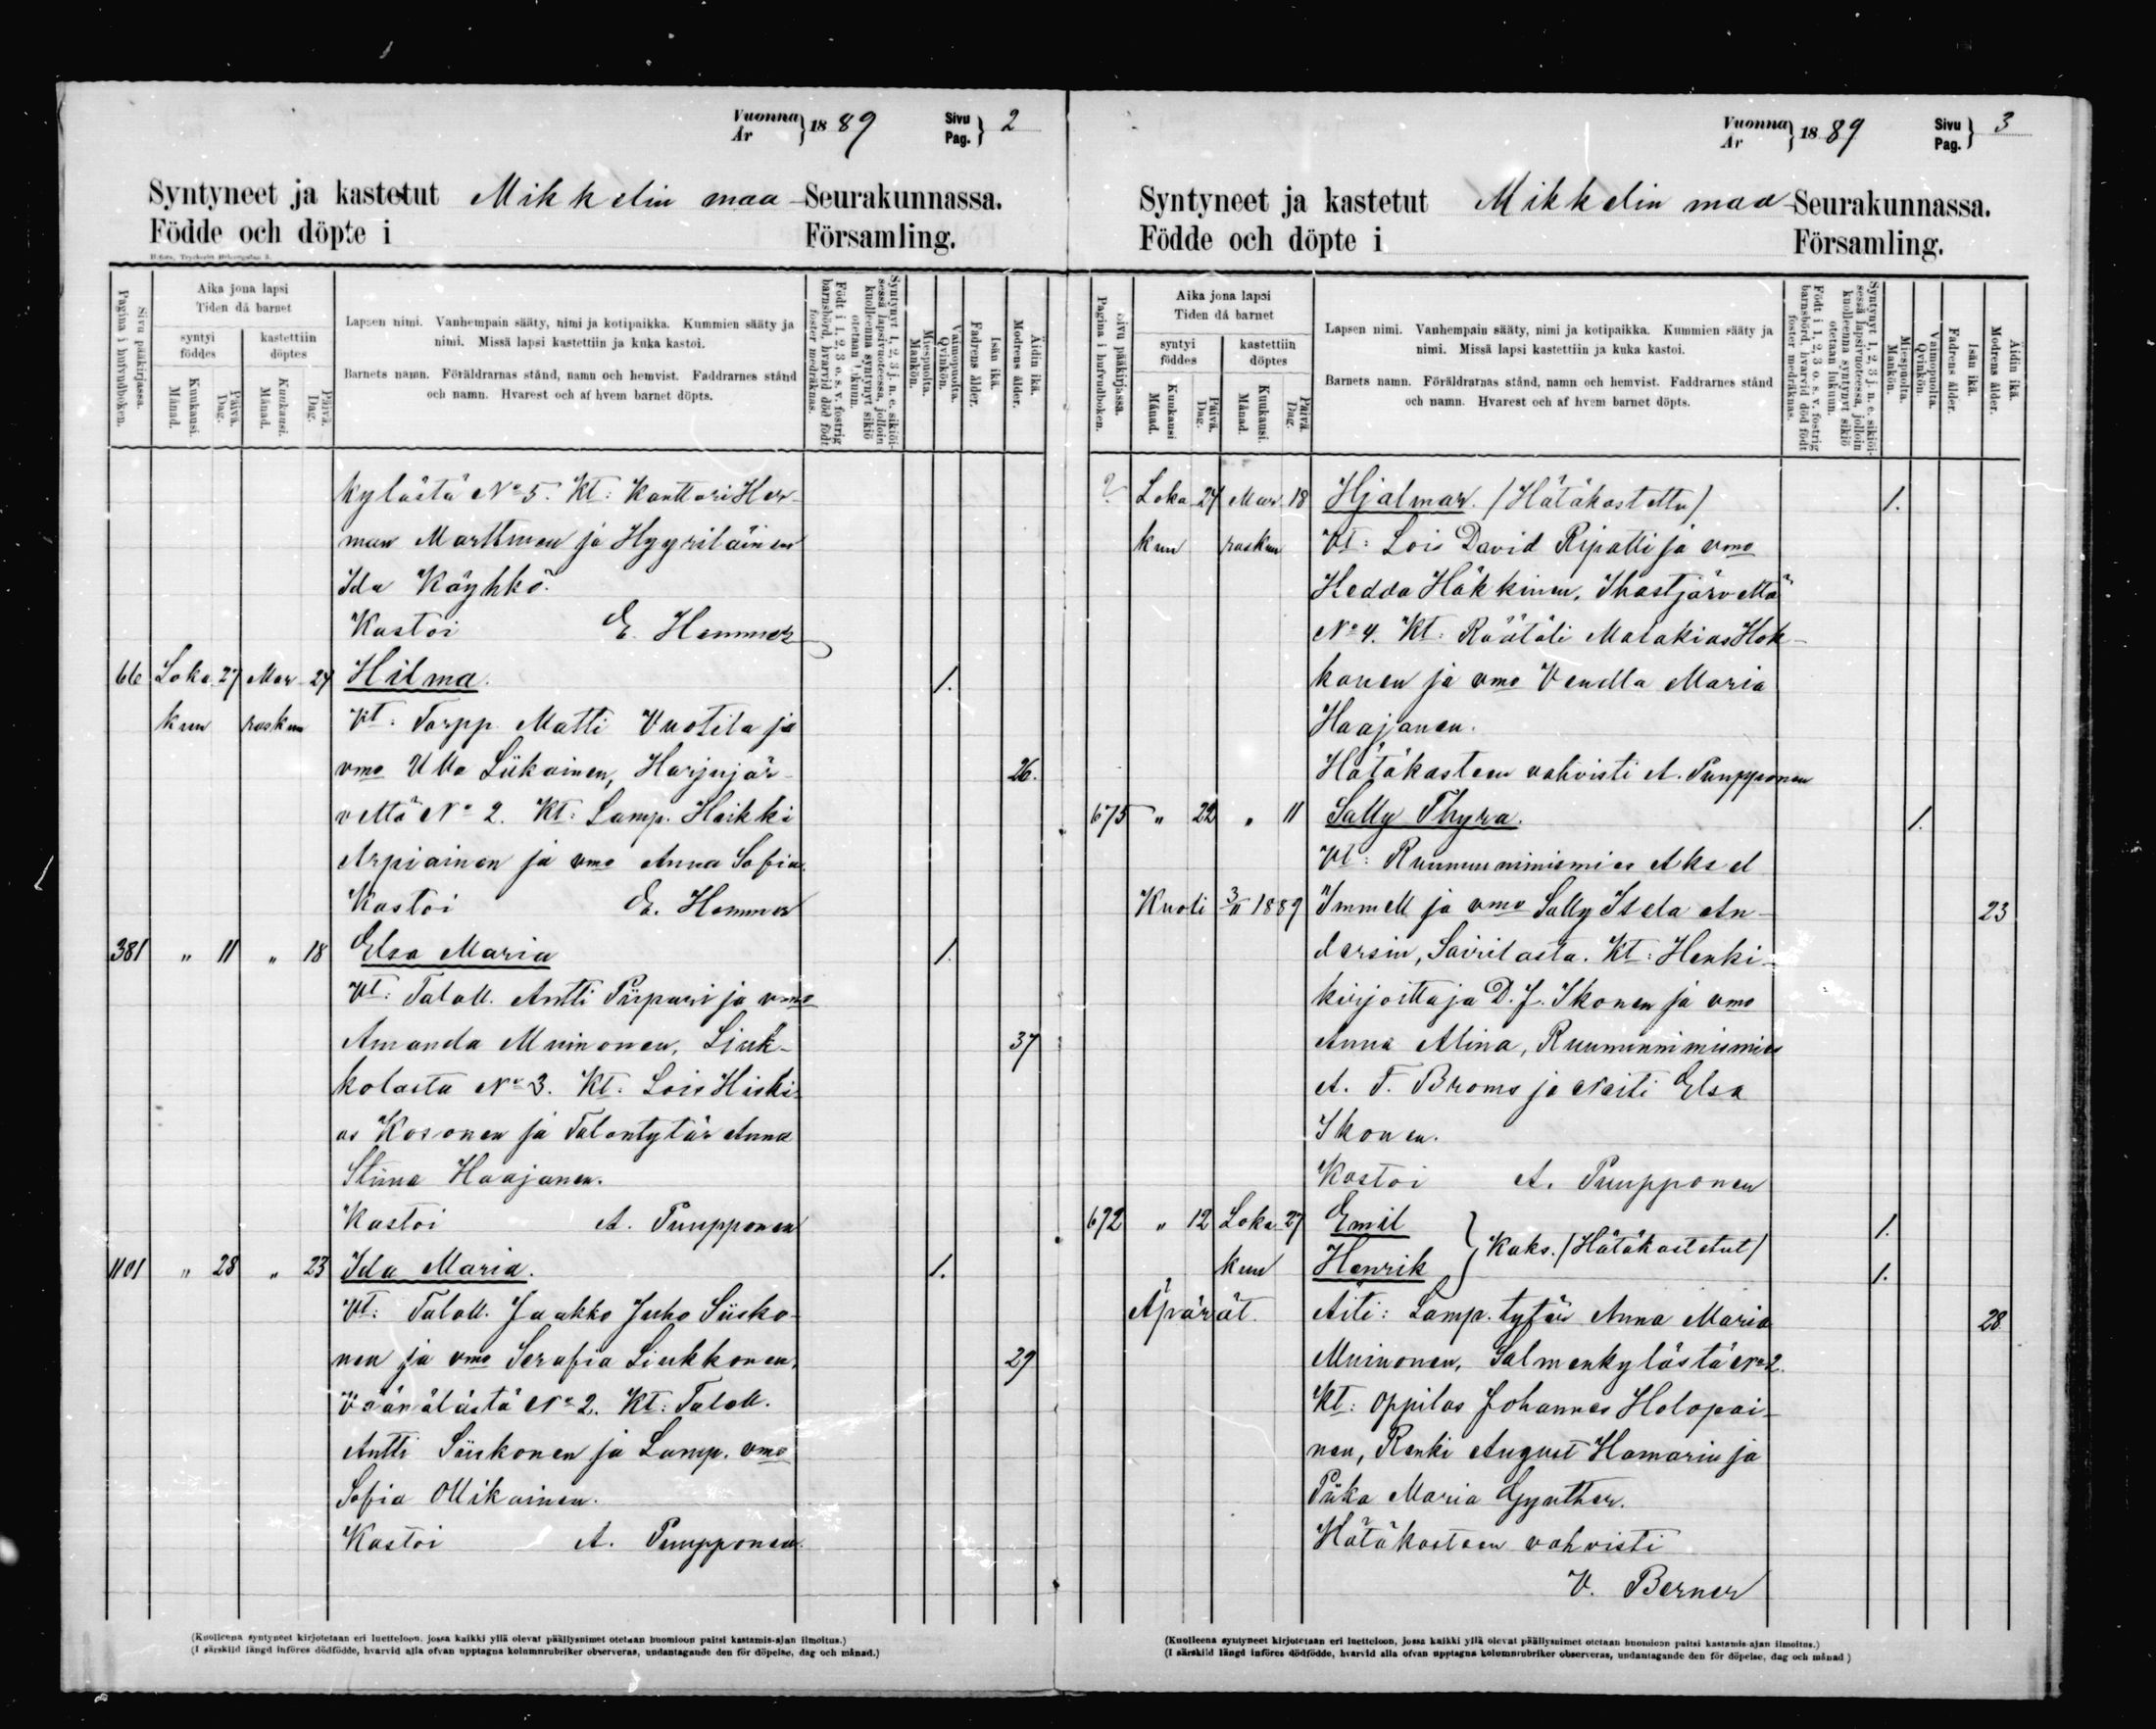 Vuonna
År } 18 89 Sivu
Pag. } 2
Syntyneet ja kastetut Mikkelin maa-Seurakunnassa.
Födde och döpte i Församling.
Sivu pääkirjassa.
Pagina i hufvudboken.
Aika jona lapsi
Tiden då barnet
syntyi
föddes
kastettiin
döptes
Kuukausi.
Månad.
Päivä.
Dag.
Kuukausi.
Månad.
Päivä.
Dag.
Lapsen nimi. Vanhempain sääty, nimi ja kotipaikka. Kummien sääty ja
nimi. Missä lapsi kastettiin ja kuka kastoi.
Barnets namn. Föräldrarnas stånd, namn och hemvist. Faddrarnes stånd
och namn. Hvarest och af hvem barnet döpts.
Syntynyt 1, 2, 3 j. n. e. sikiöi-
sessä lapsivuoteessa, jolloin
kuolleenna syntynyt sikiö
otetaan lukuun.
Född i 1, 2, 3 o. s. v. fostrig
barnsbörd, hvarvid död född
foster medräknas.
Miespuolta.
Mankön.
Vaimopuolta.
Qvinkön.
Isän ikä.
Fadrens ålder.
Äidin ikä.
Modrens ålder.
kylästä No 5. Kt: Kanttori Her-
man Marttinen ja Hyyriläinen
Ida Käyhkö.
Kastoi E. Hemmer
66 Loka 27 Mar 24 Hilma. 1.
kuu raskuu Vt: Torpp. Matti Vuotila ja
vmo Ulla Liikainen, Harjujär- 26.
veltä No 2. Kt: Lamp. Heikki
Arpiainen ja vmo Anna Sofia.
Kastoi E. Hemmer
381 " 11 " 18 Elsa Maria 1.
Vt: Taloll. Antti Piipari ja vmo
Amanda Muinonen, Liuk- 37
kolasta No 3. Kt: Lois Hiski-
as Kosonen ja Talontytär Anna
Stiina Haajanen.
Kastoi A. Puupponen
1101 " 28 " 23 Ida Maria. 1.
Vt: Taloll. Jaakko Juho Siisko-
nen ja vmo Serafia Liukkonen, 29
Väänälästä No 2. Kt: Taloll.
Antti Siiskonen ja Lamp. vmo
Sofia Ollikainen.
Kastoi A. Puupponen.
(Kuolleena syntyneet kirjotetaan eri luetteloon, jossa kaikki yllä olevat päällysnimet otetaan huomioon paitsi kastamis-ajan ilmoitus.)
(I särskild längd införes dödfödde, hvarvid alla ofvan upptagna kolumnrubriker observeras, undantagande den för döpelse, dag och månad.)
Vuonna
År } 18 89 Sivu
Pag. } 3
Syntyneet ja kastetut Mikkelin maa-Seurakunnassa.
Födde och döpte i Församling.
Sivu pääkirjassa.
Pagina i hufvudboken.
Aika jona lapsi
Tiden då barnet
syntyi
föddes
kastettiin
döptes
Kuukausi
Månad.
Päivä.
Dag.
Kuukausi.
Månad.
Päivä.
Dag.
Lapsen nimi. Vanhempain sääty, nimi ja kotipaikka. Kummien sääty ja
nimi. Missä lapsi kastettiin ja kuka kastoi.
Barnets namn. Föräldrarnas stånd, namn och hemvist. Faddrarnes stånd
och namn. Hvarest och af hvem barnet döpts.
Syntynyt 1, 2, 3 j. n. e. sikiöi-
sessä lapsivuoteessa, jolloin
kuolleenna syntynyt sikiö
otetaan lukuun.
Född i 1, 2, 3 o. s. v. fostrig
barnsbörd, hvarvid död född
foster medräknas.
Miespuolta.
Mankön.
Vaimopuolta.
Qvinkön.
Isän ikä.
Fadrens ålder.
Äidin ikä.
Modrens ålder.
? Loka 24 Mar 18 Hjalmar. (Hätäkastettu) 1.
kuu raskuu Vt: Lois David Ripatti ja vmo
Hedda Häkkinen, Ihastjärveltä
No 4. Kt: Räätäli Malakias Hok-
kanen ja vmo Vendla Maria
Haajanen.
Hätäkasteen vahvisti A. Puupponen
675 " 22 " 11 Sally Thyra. 1.
Vt: Ruununnimismies Aksel
Kuoli 3/11 1889 Immell ja vmo Sally Isela An- 23
dersin, Sairilasta. Kt: Henki-
kirjoittaja D. J. Ikonen ja vmo
Anna Alina, Ruununnimismies
A. F. Broms ja Neiti Elsa
Ikonen.
Kastoi A. Puupponen
672 " 12 Loka 27 Emil } Kaks. (Hätäkastetut) 1.
kuu Henrik 1.
Äpärät. Äiti: Lamp. tytär Anna Maria 28.
Muinonen, Salmenkylästä No 2.
Kt: Oppilas Johannes Holopai-
nen, Renki August Hamarin ja
Piika Maria Gynther.
Hätäkasteen vahvisti
V. Berner
(Kuolleena syntyneet kirjotetaan eri luetteloon, jossa kaikki yllä olevat päällysnimet otetaan huomioon paitsi kastamis-ajan ilmoitus.)
(I särskild längd införes dödfödde, hvarvid alla ofvan upptagna kolumnrubriker observeras, undantagande den för döpelse, dag och månad.)